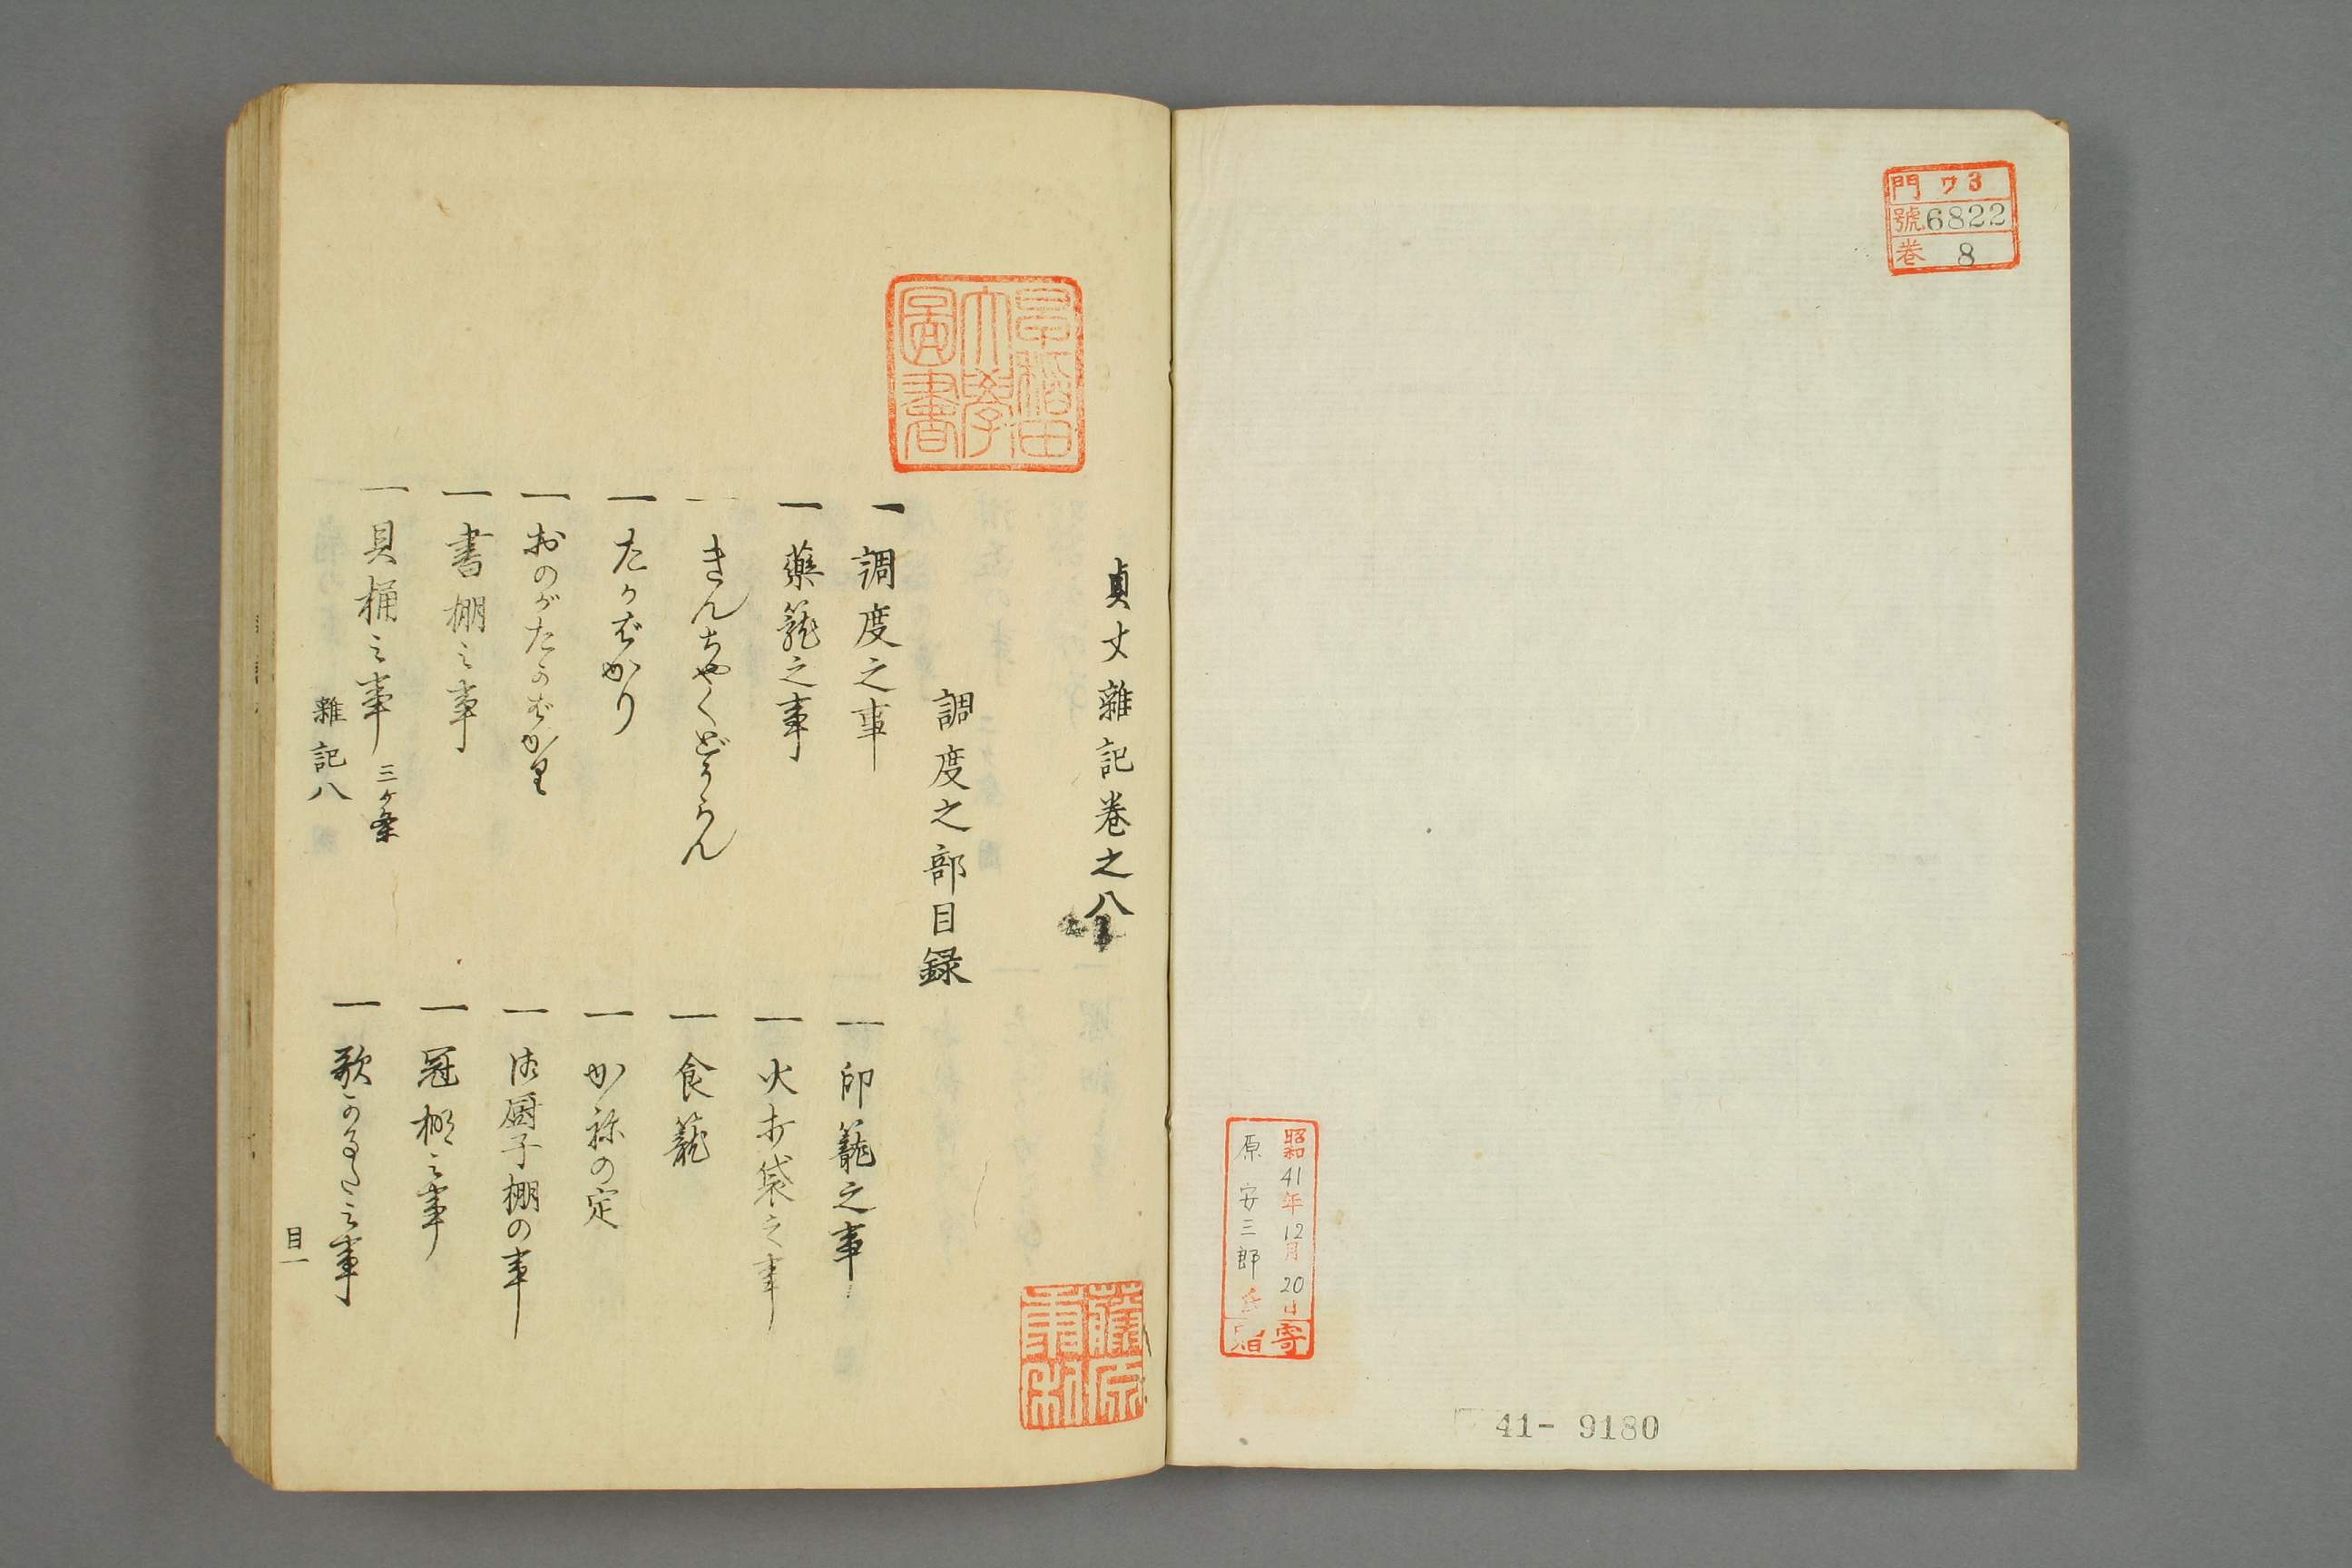 門 ワ3
號 6822
巻 8
昭和41年12月20日
原安三郎氏
寄贈
41- 9180
早稲田
大學
圖書
貞丈雜記巻之八
調度之部目録
一 調度之事
一 印籠之事
一 藥籠之事
一 火打袋之事
一 きんちやくどうらん
一 食籠
一 たかばかり
一 かねの定
一 おのがたかばかり
一 御厨子棚の事
一 書棚之事
一 冠棚之事
一 貝桶之事 三ケ条
一 歌かるた之事
雜記八
目一